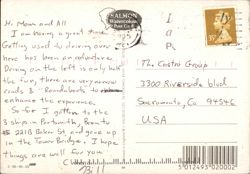 Hi Mom and All
I am having a great time
Getting used to driving over
here has been an adventure.
Driving on the left is only half
the fun, there are very narrow
roads & Roundabouts to
enhance the experience.
So far I gotten to the
ship in Portsmouth, Been to
221B Baker St, and gone up
in the Tower Bridge, I hope
things are well
Bill
SALMON
The Castro Group
3300 Riverside blvd
Sacramento, Ca
USA
5 012493 020002